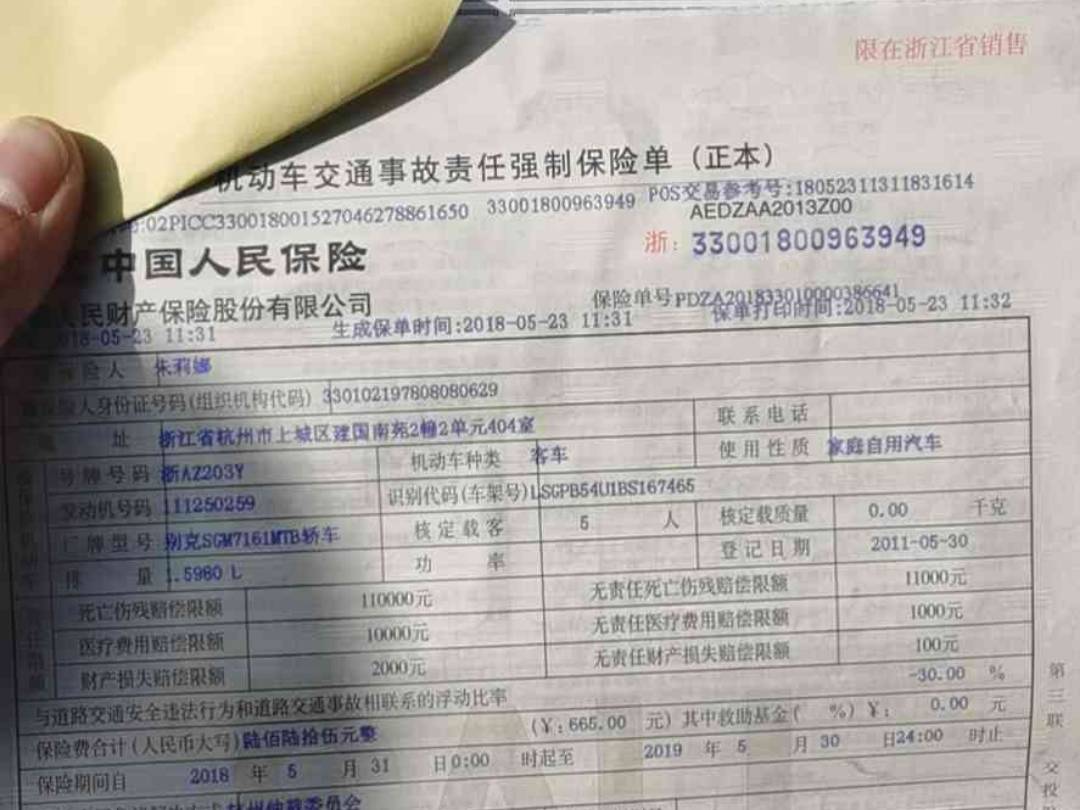 限在浙江省销售
机动车交通事故责任强制保险单（正本）
:02PICC330018001527046278861650 33001800963949 POS交易参考号:18052311311831614
AEDZAA2013Z00
浙：33001800963949
中国人民保险
人民财产保险股份有限公司 保险单号PDZA201833010000386641
2018-05-23 11:31 生成保单时间:2018-05-23 11:31 保单打印时间:2018-05-23 11:32
保险人 朱莉娜
保险人身份证号码(组织机构代码) 330102197808080629
址 浙江省杭州市上城区建国南苑2幢2单元404室 联系电话
号牌号码 浙AZ203Y 机动车种类 客车 使用性质 家庭自用汽车
发动机号码 111250259 识别代码(车架号) LSGPB54U1BS167465
厂牌型号 别克SGM7161MTB轿车 核定载客 5 人 核定载质量 0.00 千克
排量 1.5980 L 功率 登记日期 2011-05-30
死亡伤残赔偿限额 110000元 无责任死亡伤残赔偿限额 11000元
医疗费用赔偿限额 10000元 无责任医疗费用赔偿限额 1000元
财产损失赔偿限额 2000元 无责任财产损失赔偿限额 100元
与道路交通安全违法行为和道路交通事故相联系的浮动比率 -30.00 %
保险费合计(人民币大写) 陆佰陆拾伍元整 (￥: 665.00 元) 其中救助基金( %) ￥: 0.00 元
保险期间自 2018 年 5 月 31 日0:00 时起至 2019 年 5 月 30 日24:00 时止
杭州仲裁委员会
第三联
交投